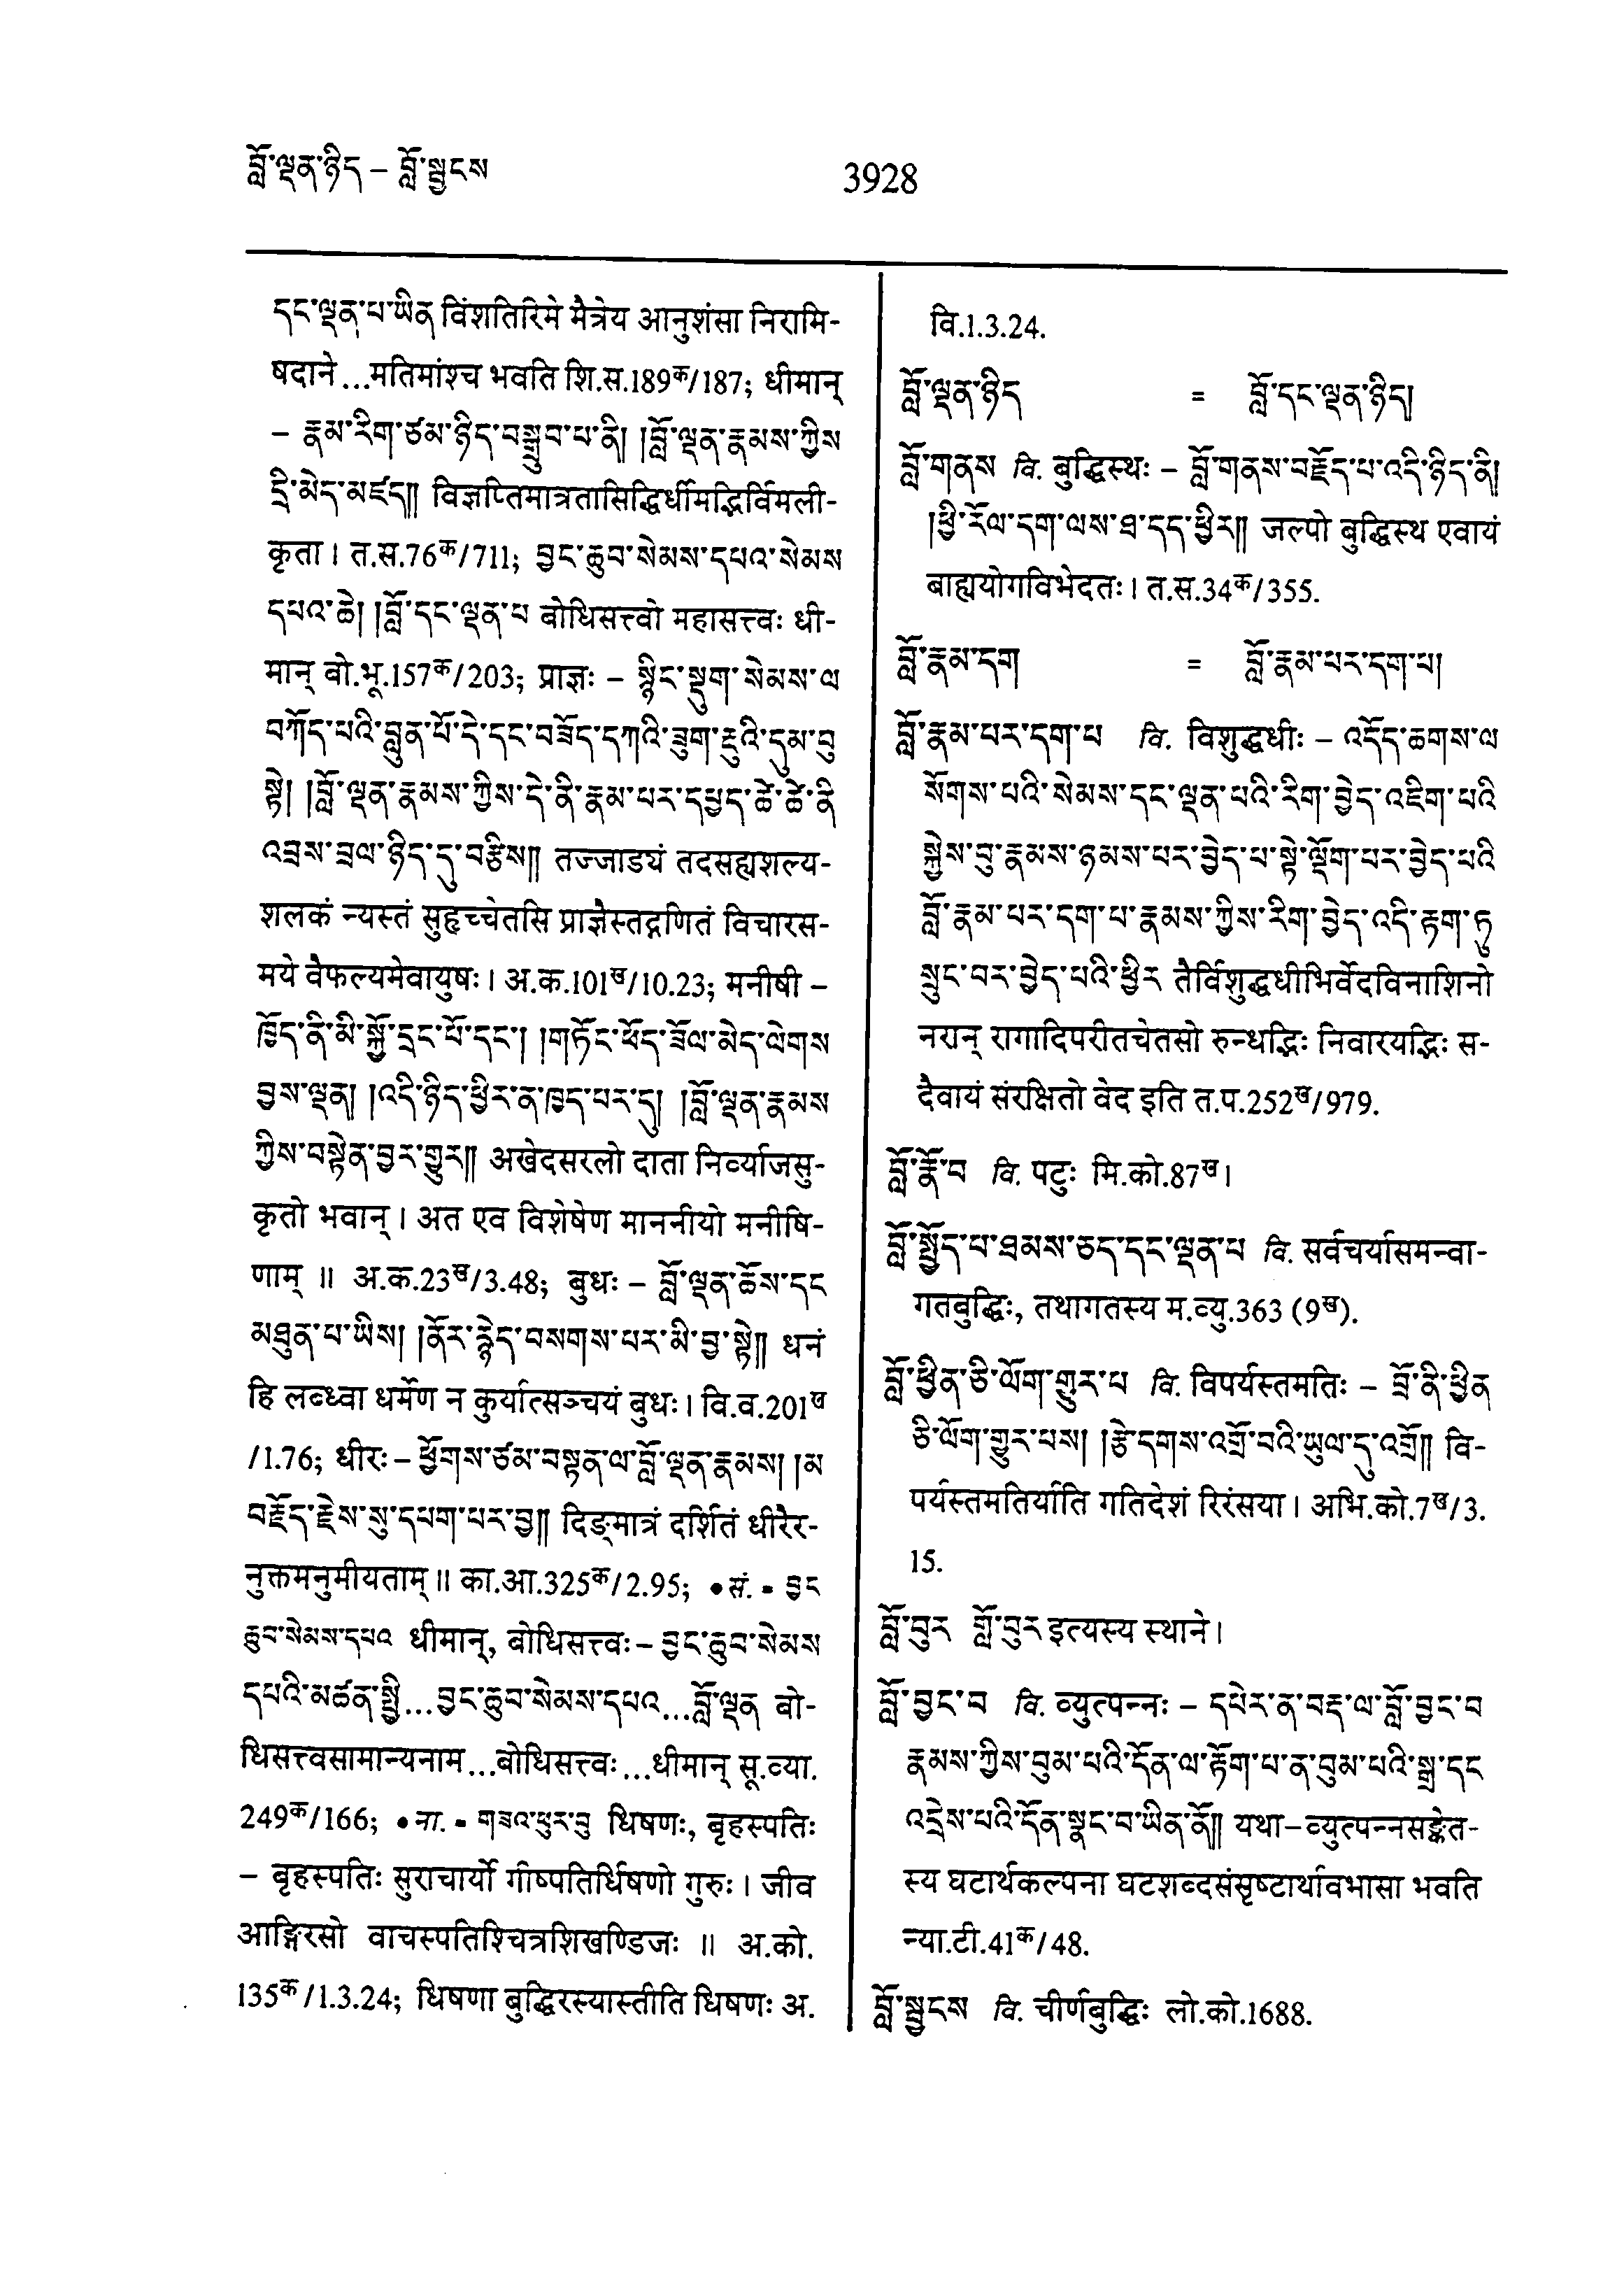 བློ་ལྡན་ཉིད – བློ་སྦྱངས
3928
དང་ལྡན་པ་ཡིན विंशतिरिमे मैत्रेय आनुशंसा निरामि-
षदाने...मतिमांश्च भवति शि.स.189क/187; धीमान्
– རྣམ་རིག་ཙམ་ཉིད་བསྒྲུབ་པ་ནི། །བློ་ལྡན་རྣམས་ཀྱིས
དྲི་མེད་མཛད།། विज्ञप्तिमात्रतासिद्धिर्धीमद्भिर्विमली-
कृता । त.स.76क/711; བྱང་ཆུབ་སེམས་དཔའ་སེམས
དཔའ་ཆེ། །བློ་དང་ལྡན་པ बोधिसत्त्वो महासत्त्वः धी-
मान् बो.भू.157क/203; प्राज्ञः – སྙིང་སྡུག་སེམས་ལ
བཀོད་པའི་བླུན་པོ་དེ་དང་བཟོད་དཀའི་ཟུག་རྔུའི་དུམ་བུ
སྟེ། །བློ་ལྡན་རྣམས་ཀྱིས་དེ་ནི་རྣམ་པར་དཔྱད་ཚེ་ཚེ་ནི
འབྲས་བྲལ་ཉིད་དུ་བརྩིས།། तज्जाडयं तदसह्यशल्य-
शलकं न्यस्तं सुहृच्चेतसि प्राज्ञैस्तद्गणितं विचारस-
मये वैफल्यमेवायुषः । अ.क.101ख/10.23; मनीषी –
ཁྱོད་ནི་མི་སྐྱོ་དྲང་པོ་དང་། །གཏོང་ཕོད་ཟོལ་མེད་ལེགས
བྱས་ལྡན། །འདི་ཉིད་ཕྱིར་ན་ཁྱད་པར་དུ། །བློ་ལྡན་རྣམས
ཀྱིས་བསྟེན་བྱར་གྱུར།། अखेदसरलो दाता निर्व्याजसु-
कृतो भवान् । अत एव विशेषेण माननीयो मनीषि-
णाम् ॥ अ.क.23ख/3.48; बुधः – བློ་ལྡན་ཆོས་དང
མཐུན་པ་ཡིས། །ནོར་རྙེད་བསགས་པར་མི་བྱ་སྟེ།། धनं
हि लब्ध्वा धर्मेण न कुर्यात्सञ्चयं बुधः । वि.व.201ख
/1.76; धीरः – ཕྱོགས་ཙམ་བསྟན་ལ་བློ་ལྡན་རྣམས། །མ
བརྗོད་རྗེས་སུ་དཔག་པར་བྱ།། दिङ्मात्रं दर्शितं धीरैर-
नुक्तमनुमीयताम् ॥ का.आ.325क/2.95; • सं. - བྱང
ཆུབ་སེམས་དཔའ धीमान्, बोधिसत्त्वः – བྱང་ཆུབ་སེམས
དཔའི་མཚན་སྤྱི...བྱང་ཆུབ་སེམས་དཔའ...བློ་ལྡན बो-
धिसत्त्वसामान्यनाम...बोधिसत्त्वः...धीमान् सू.व्या.
249क/166; • ना. - གཟའ་ཕུར་བུ धिषणः, बृहस्पतिः
– बृहस्पतिः सुराचार्यो गीष्पतिर्धिषणो गुरुः । जीव
आङ्गिरसो वाचस्पतिश्चित्रशिखण्डिजः ॥ अ.को.
135क/1.3.24; धिषणा बुद्धिरस्यास्तीति धिषणः अ.
वि.1.3.24.
བློ་ལྡན་ཉིད = བློ་དང་ལྡན་ཉིད།
བློ་གནས वि. बुद्धिस्थः – བློ་གནས་བརྗོད་པ་འདི་ཉིད་ནི།
།ཕྱི་རོལ་དག་ལས་ཐ་དད་ཕྱིར།། जल्पो बुद्धिस्थ एवायं
बाह्ययोगविभेदतः । त.स.34क/355.
བློ་རྣམ་དག = བློ་རྣམ་པར་དག་པ།
བློ་རྣམ་པར་དག་པ वि. विशुद्धधीः – འདོད་ཆགས་ལ
སོགས་པའི་སེམས་དང་ལྡན་པའི་རིག་བྱེད་འཇིག་པའི
སྐྱེས་བུ་རྣམས་ཉམས་པར་བྱེད་པ་སྟེ་ལྡོག་པར་བྱེད་པའི
བློ་རྣམ་པར་དག་པ་རྣམས་ཀྱིས་རིག་བྱེད་འདི་རྟག་ཏུ
སྲུང་བར་བྱེད་པའི་ཕྱིར तैर्विशुद्धधीभिर्वेदविनाशिनो
नरान् रागादिपरीतचेतसो रुन्धद्भिः निवारयद्भिः स-
दैवायं संरक्षितो वेद इति त.प.252ख/979.
བློ་རྣོ་བ वि. पटुः मि.को.87ख ।
བློ་སྤྱོད་པ་ཐམས་ཅད་དང་ལྡན་པ वि. सर्वचर्यासमन्वा-
गतबुद्धिः, तथागतस्य म.व्यु.363 (9ख).
བློ་ཕྱིན་ཅི་ལོག་གྱུར་པ वि. विपर्यस्तमतिः – བློ་ནི་ཕྱིན
ཅི་ལོག་གྱུར་པས། །རྩེ་དགས་འགྲོ་བའི་ཡུལ་དུ་འགྲོ།། वि-
पर्यस्तमतिर्याति गतिदेशं रिरंसया । अभि.को.7ख/3.
15.
བློ་བུར གློ་བུར इत्यस्य स्थाने ।
བློ་བྱང་བ वि. व्युत्पन्नः – དཔེར་ན་བརྡ་ལ་བློ་བྱང་བ
རྣམས་ཀྱིས་བུམ་པའི་དོན་ལ་རྟོག་པ་ན་བུམ་པའི་སྒྲ་དང
འདྲེས་པའི་དོན་སྣང་བ་ཡིན་ནོ།། यथा–व्युत्पन्नसङ्केत-
स्य घटार्थकल्पना घटशब्दसंसृष्टार्थावभासा भवति
न्या.टी.41क/48.
བློ་སྦྱངས वि. चीर्णबुद्धिः लो.को.1688.